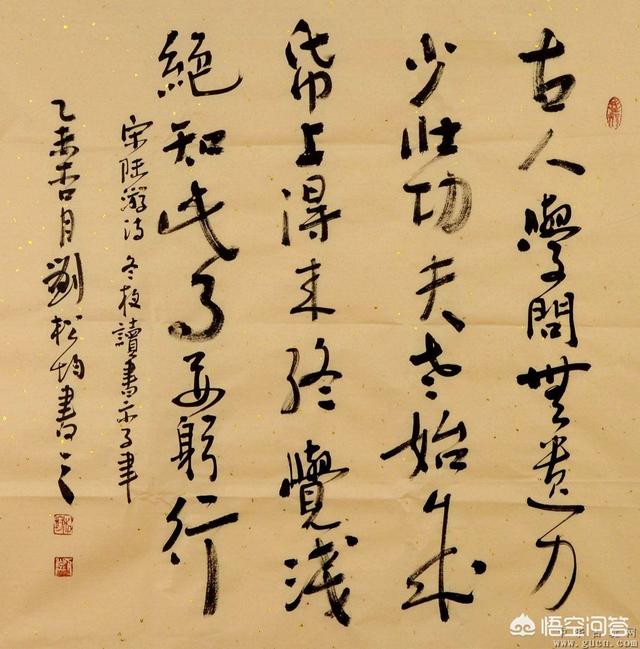 古人學問無遺力
少壯功夫老始成
帋上得来終覺淺
絶知此事要躬行
宋陸游詩 冬夜讀書示子聿
乙未杏月劉松均書之
悟空问答
www.gucn.com